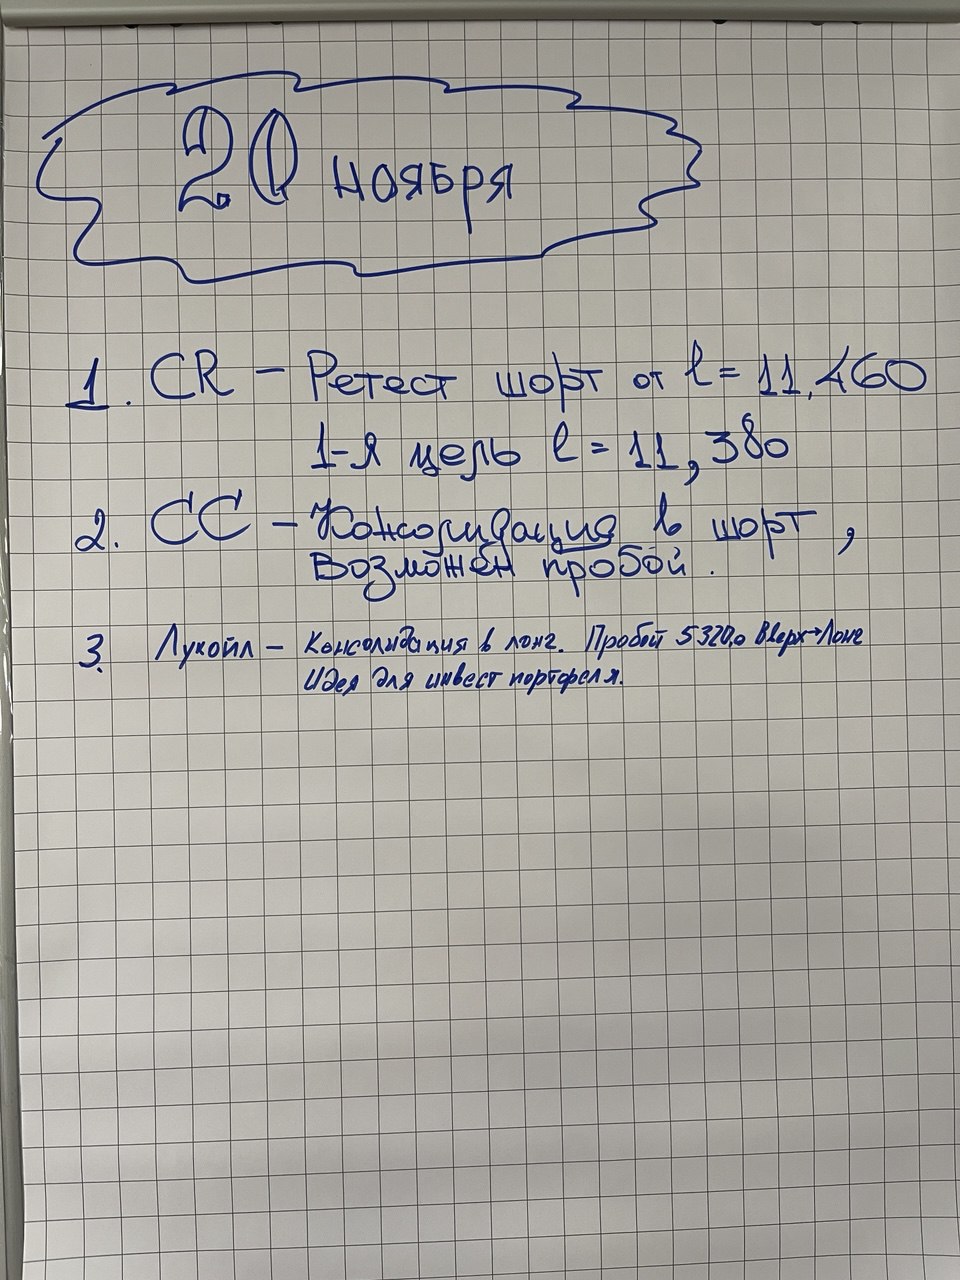 20 ноября
1. CR - Ретест шорт от l = 11,460
1-я цель l = 11,380
2. CC - Консолидация в шорт,
Возможен пробой.
3. Лукойл - Консолидация в лонг. Пробой 5320,0 Вверх→Лонг
Идея для инвест портфеля.